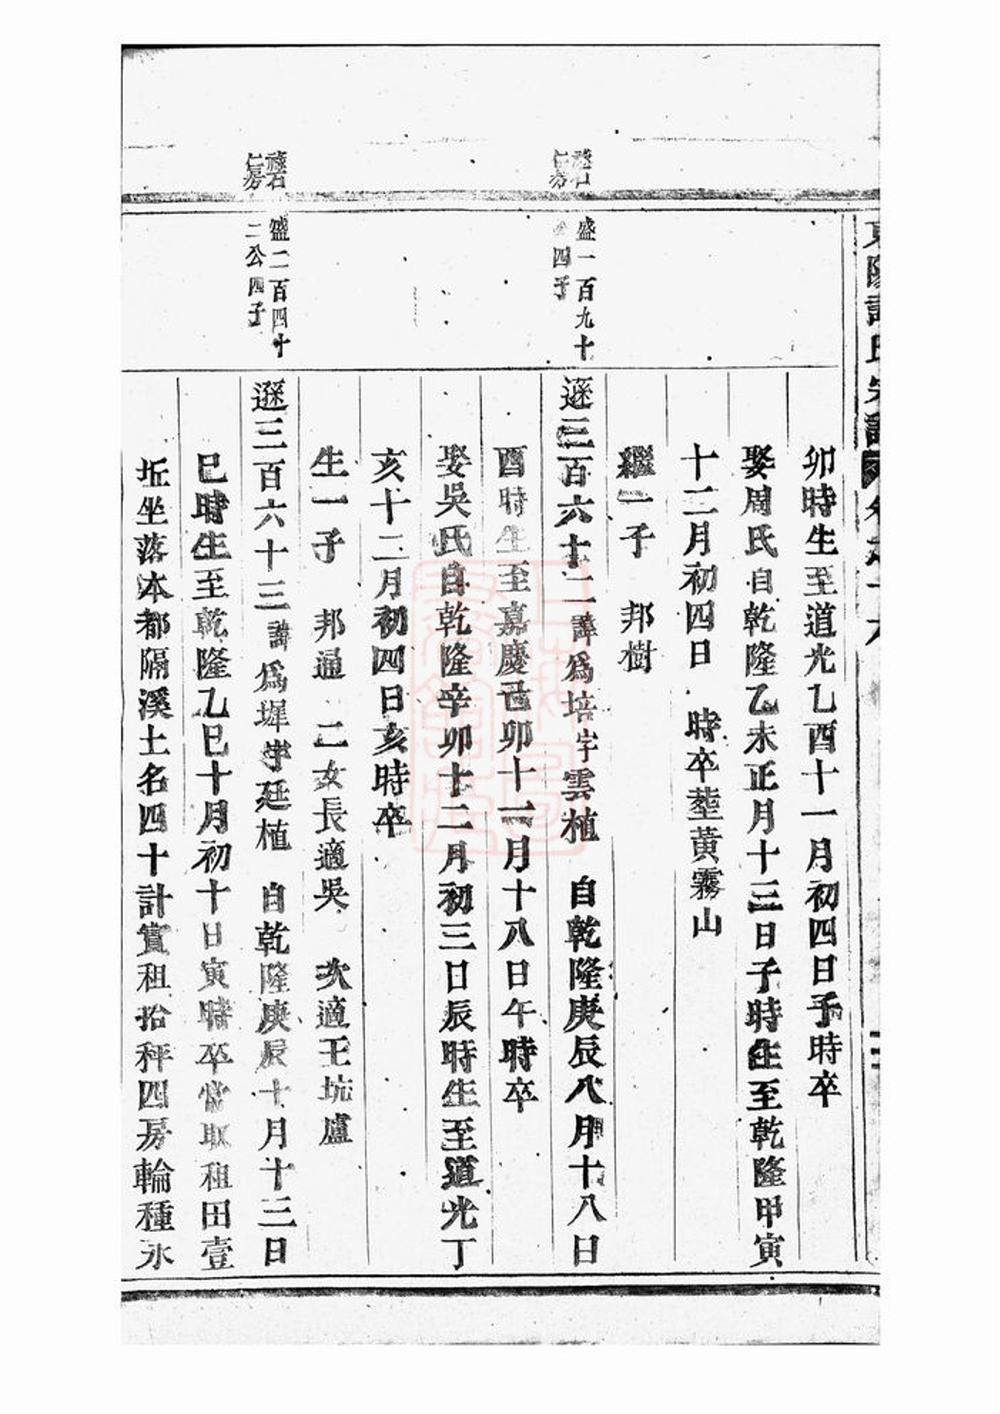 卯時生至道光乙酉十一月初四日子時卒
娶周氏自乾隆乙未正月十三日子時生至乾隆甲寅
十二月初四日 時卒塟黃霧山
繼一子 邦樹
盛一百九十
四子
遜三百六十二諱爲培字雲植 自乾隆庚辰八月十八日
酉時生至嘉慶己卯十一月十八日午時卒
娶吳氏自乾隆辛卯十二月初三日辰時生至道光丁
亥十二月初四日亥時卒
生一子 邦通 二女長適吳 次適王坑盧
盛二百四十
二公四子
遜三百六十三諱爲墀字廷植 自乾隆庚辰十月十三日
巳時生至乾隆乙巳十月初十日寅時卒常取租田壹
坵坐落本都隔溪土名四十計實租拾秤四房輪種永